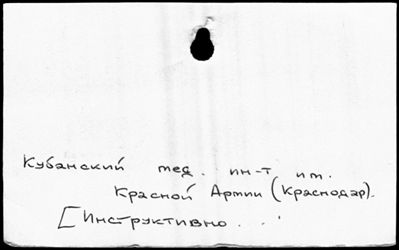 Кубанский мед. ин-т им.
Красной Армии (Краснодар).
[Инструктивно...